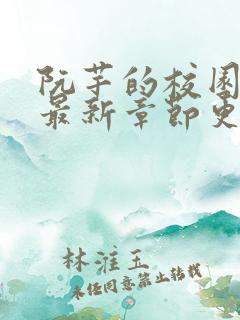 阮芋的校园
最新章节史
林淮玉
未经同意禁止转载